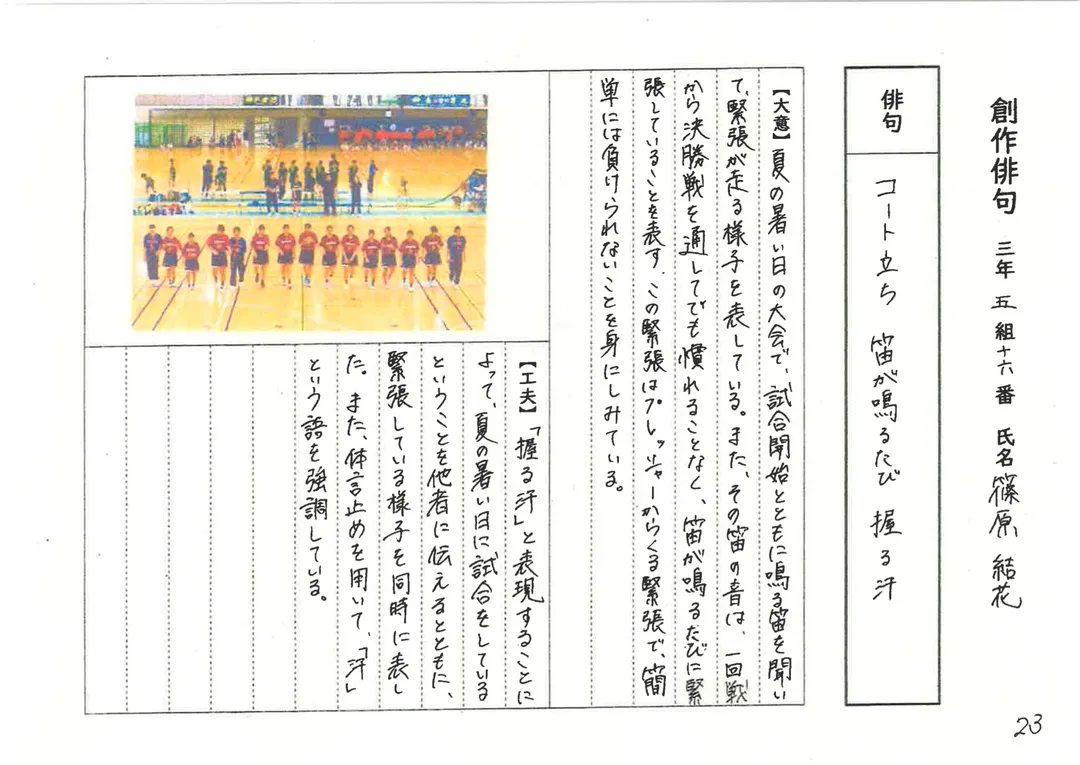 創作俳句 三年 五 組 十六 番 氏名 篠原 結花
俳句
コート立ち 笛が鳴るたび 握る汗
【大意】夏の暑い日の大会で、試合開始とともに鳴る笛を聞い
て、緊張が走る様子を表している。また、その笛の音は、一回戦
から決勝戦を通してでも慣れることなく、笛が鳴るたびに緊
張していることを表す。この緊張はプレッシャーからくる緊張で、簡
単には負けられないことを身にしみている。
【工夫】「握る汗」と表現することに
よって、夏の暑い日に試合をしている
ということを他者に伝えるとともに、
緊張している様子を同時に表し
た。また、体言止めを用いて、「汗」
という語を強調している。
23